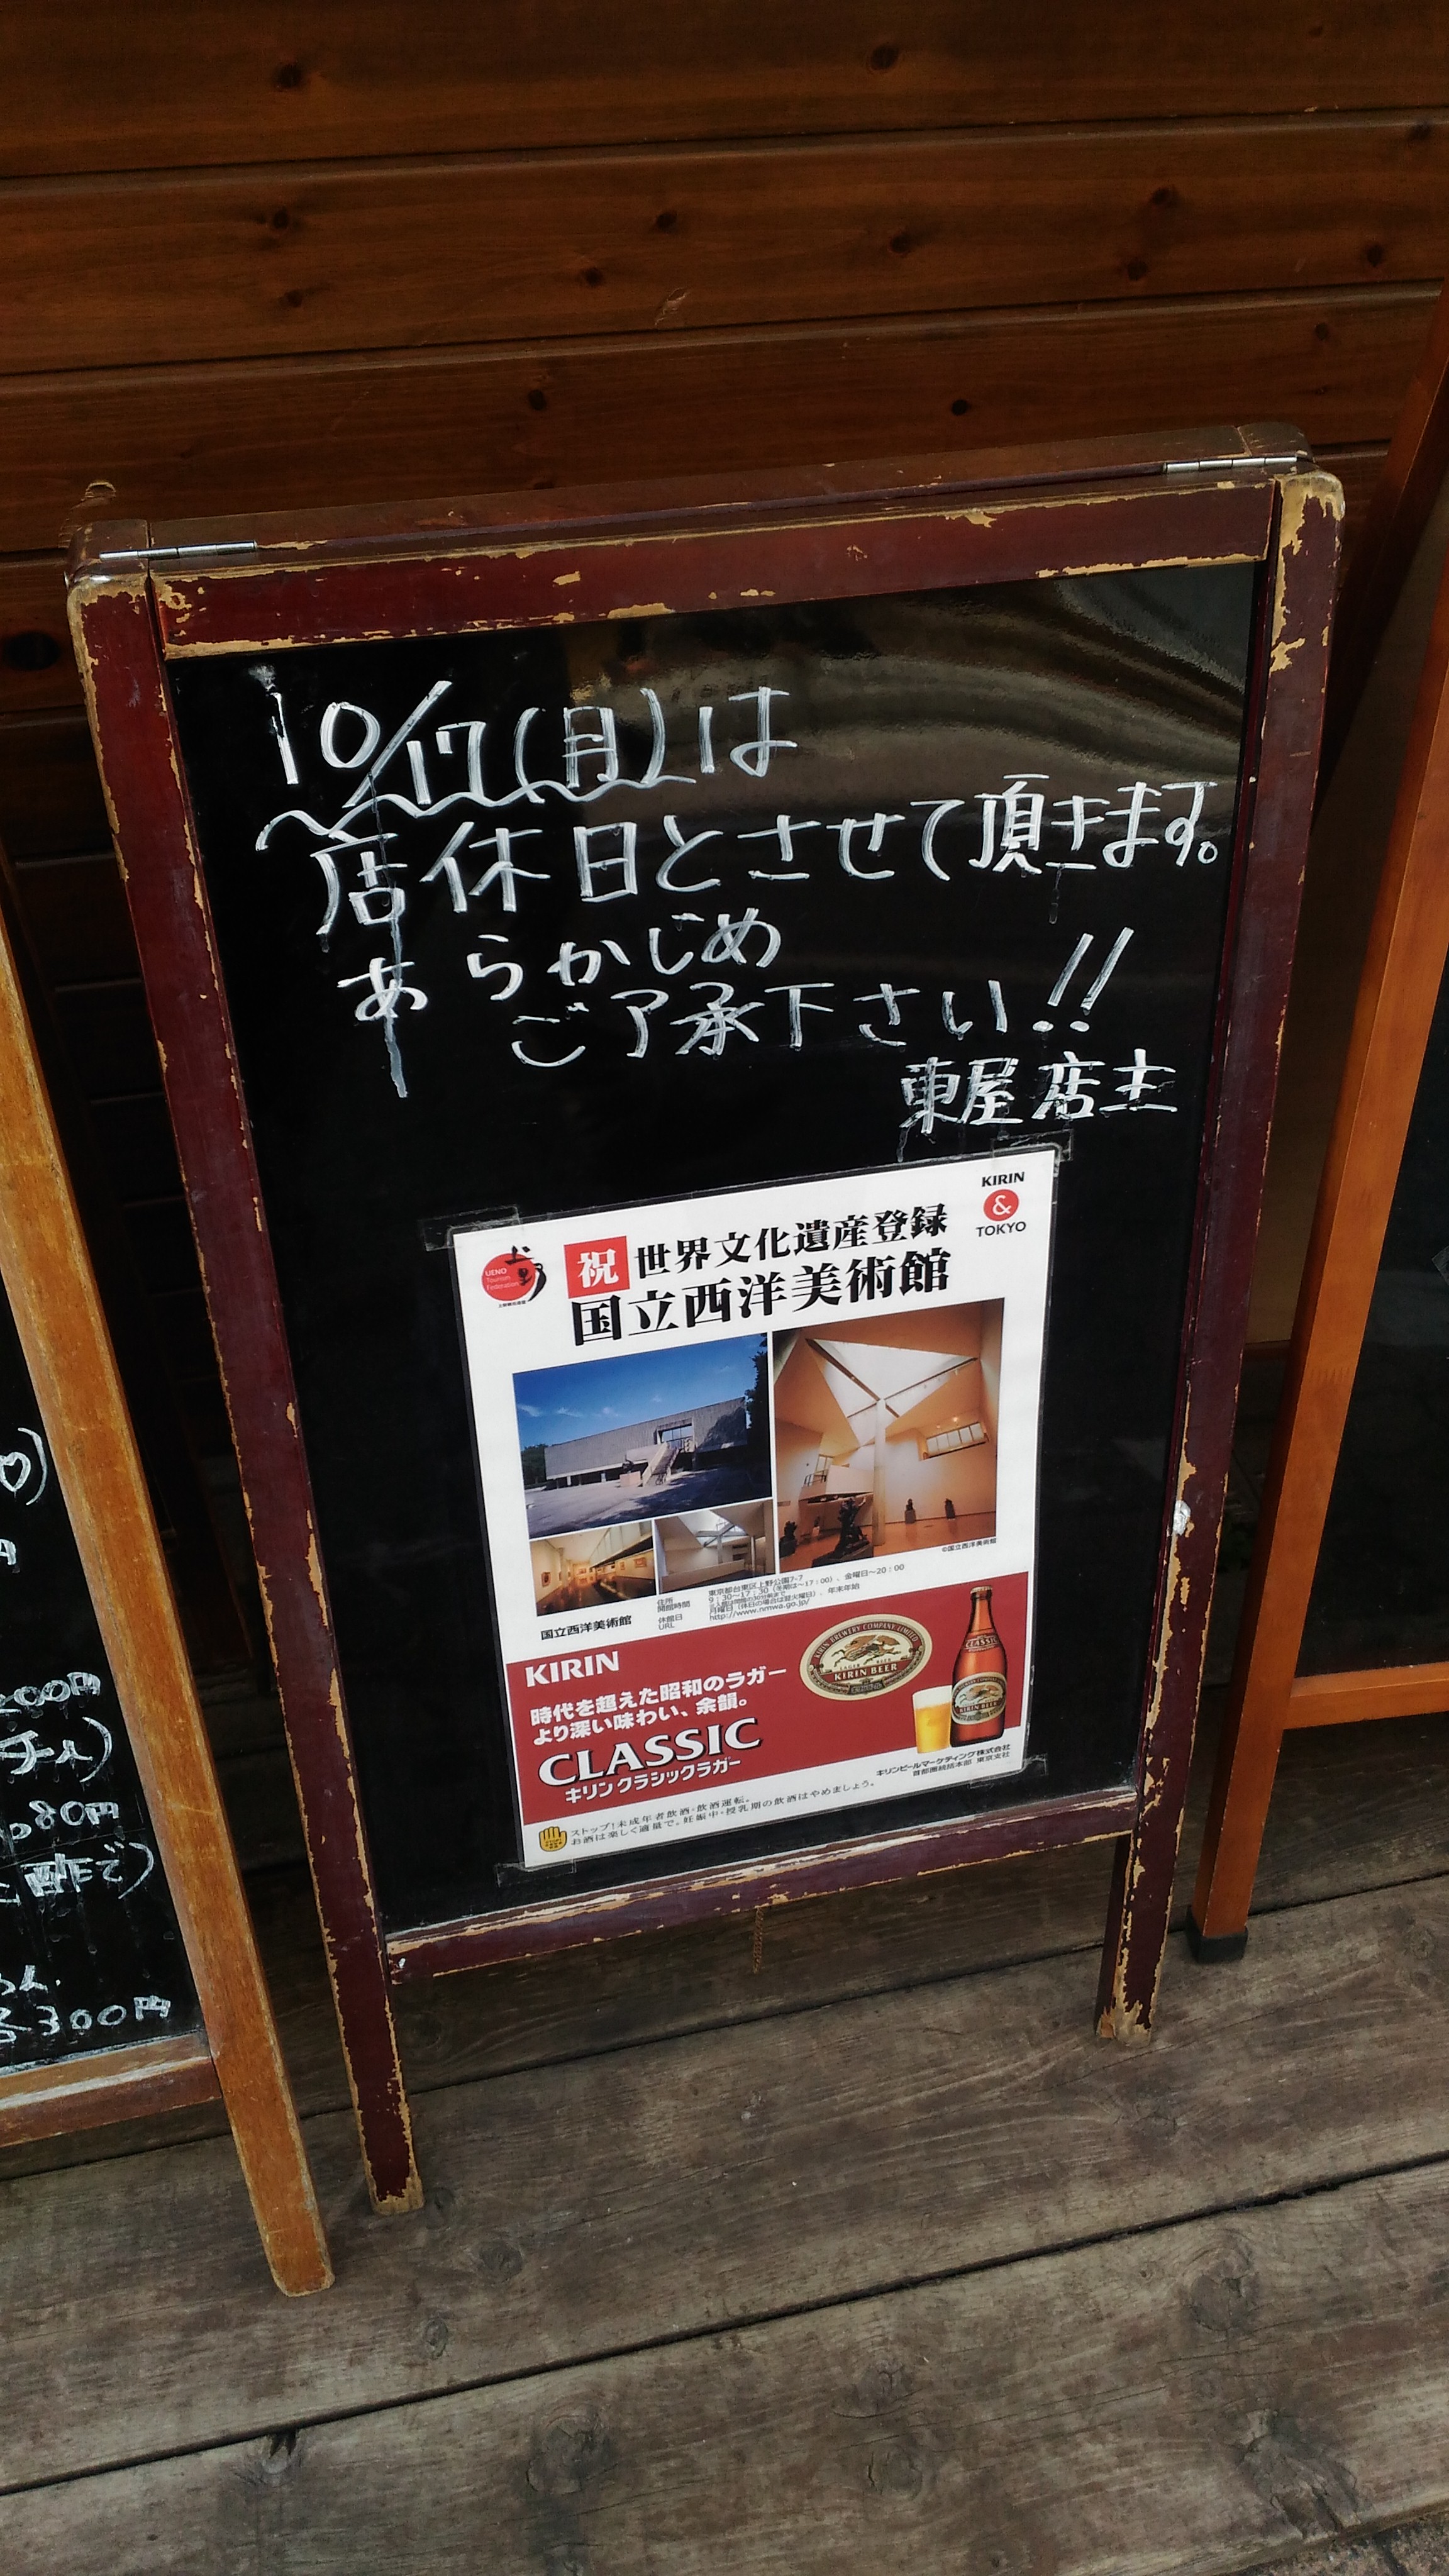 10/17(月)は
店休日とさせて頂きます。
あらかじめ
ご了承下さい!!
東屋店主
KIRIN
&
TOKYO
上野
UENO
Tourism
Federation
祝 世界文化遺産登録
国立西洋美術館
©国立西洋美術館
国立西洋美術館
住所 東京都台東区上野公園7-7
開館時間 9:30~17:30(冬期は~17:00)、金曜日~20:00
休館日 月曜日(休日の場合は翌火曜日)、年末年始
URL http://www.nmwa.go.jp/
KIRIN
時代を超えた昭和のラガー
より深い味わい、余韻。
CLASSIC
キリン クラシックラガー
KIRIN BREWERY COMPANY LIMITED
LAGER BEER
KIRIN BEER
CLASSIC
KIRIN BEER
キリンビールマーケティング株式会社
首都圏統括本部 東京支社
ストップ!未成年者飲酒・飲酒運転。
お酒は楽しく適量で。妊娠中・授乳期の飲酒はやめましょう。
200円
80円
酢で)
300円